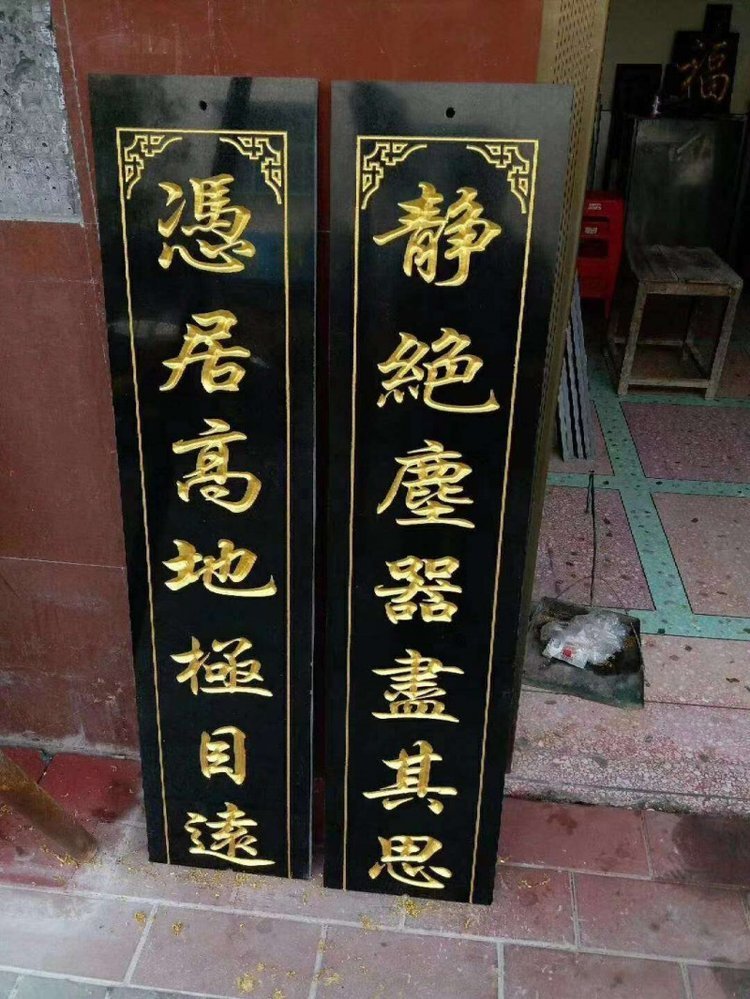 静絶塵器盡其思
憑居高地極目遠
福